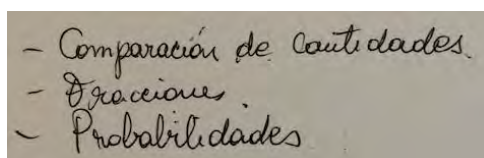 - Comparación de Cantidades.
- Fracciones.
- Probabilidades